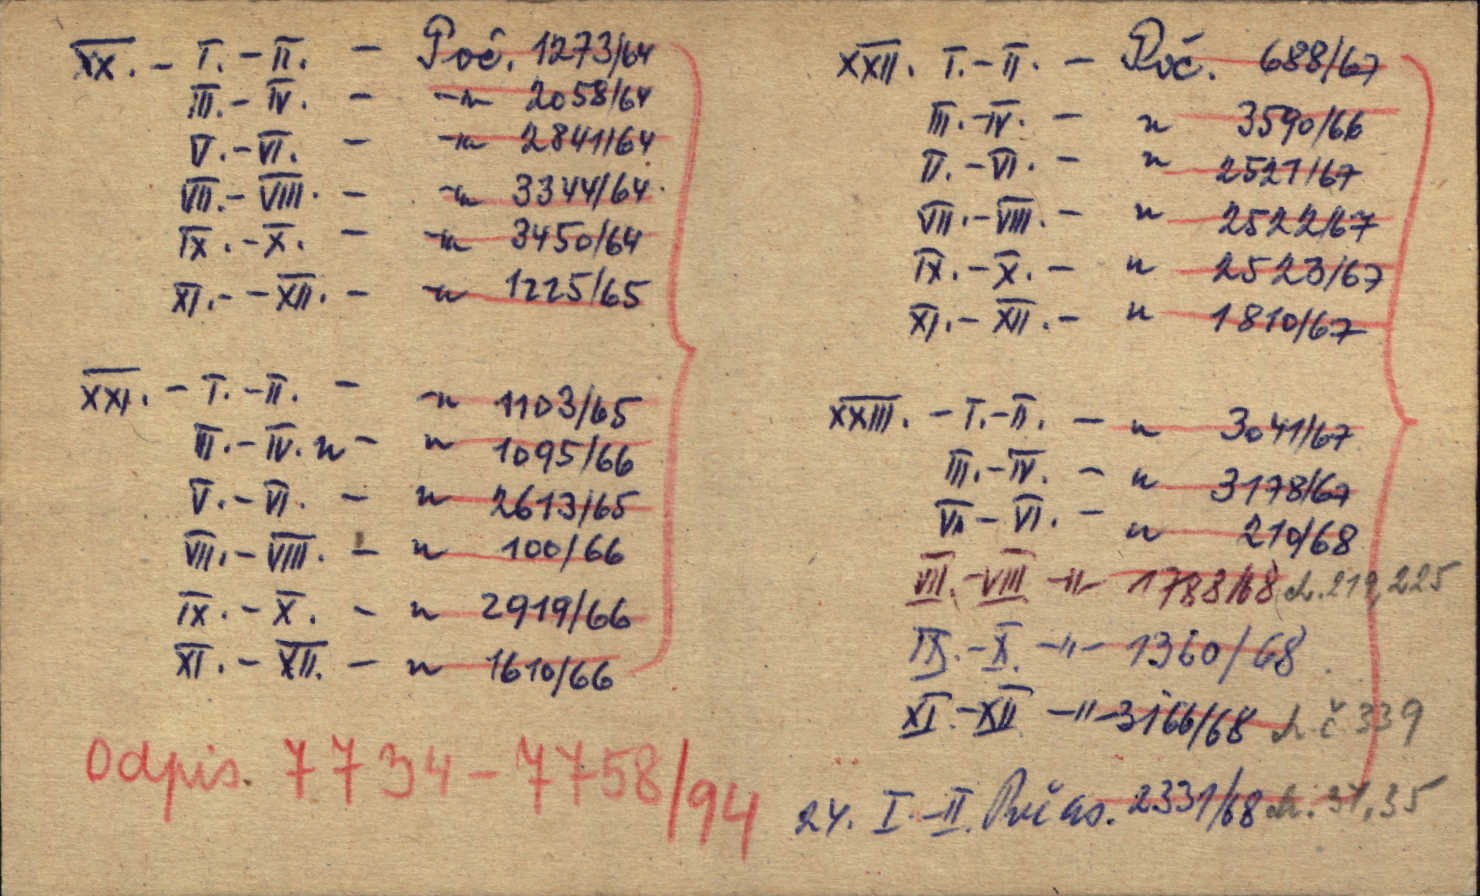 XX. - I. - II. - Poč. 1273/64
III. - IV. - -„- 2058/64
V. - VI. - -„- 2841/64
VII. - VIII. - -„- 3344/64.
IX. - X. - -„- 3450/64
XI. - - XII. - -„- 1225/65
XXI. - I. - II. - -„- 1103/65
III. - IV. „ - „ 1095/66
V. - VI. - „ 2613/65
VII. - VIII. - „ 100/66
IX. - X. - „ 2919/66
XI. - XII. - „ 1610/66
Odpis. 7734 - 7758/94
XXII. I. - II. - Poč. 688/67
III. - IV. - „ 3590/66
V. - VI. - „ 2521/67
VII. - VIII. - „ 2522/67
IX. - X. - „ 2523/67
XI. - XII. - „ 1810/67
XXIII. - I. - II. - „ 3041/67
III. - IV. - „ 3178/67
V. - VI. - „ 210/68
VII. - VIII -"- 1788/68 ch. 219, 225
IX. - X. -"- 1360/68
XI. - XII -"- 3166/68 ch. č. 339
24. I. - II. Počas. 2331/68 ch. 31, 35